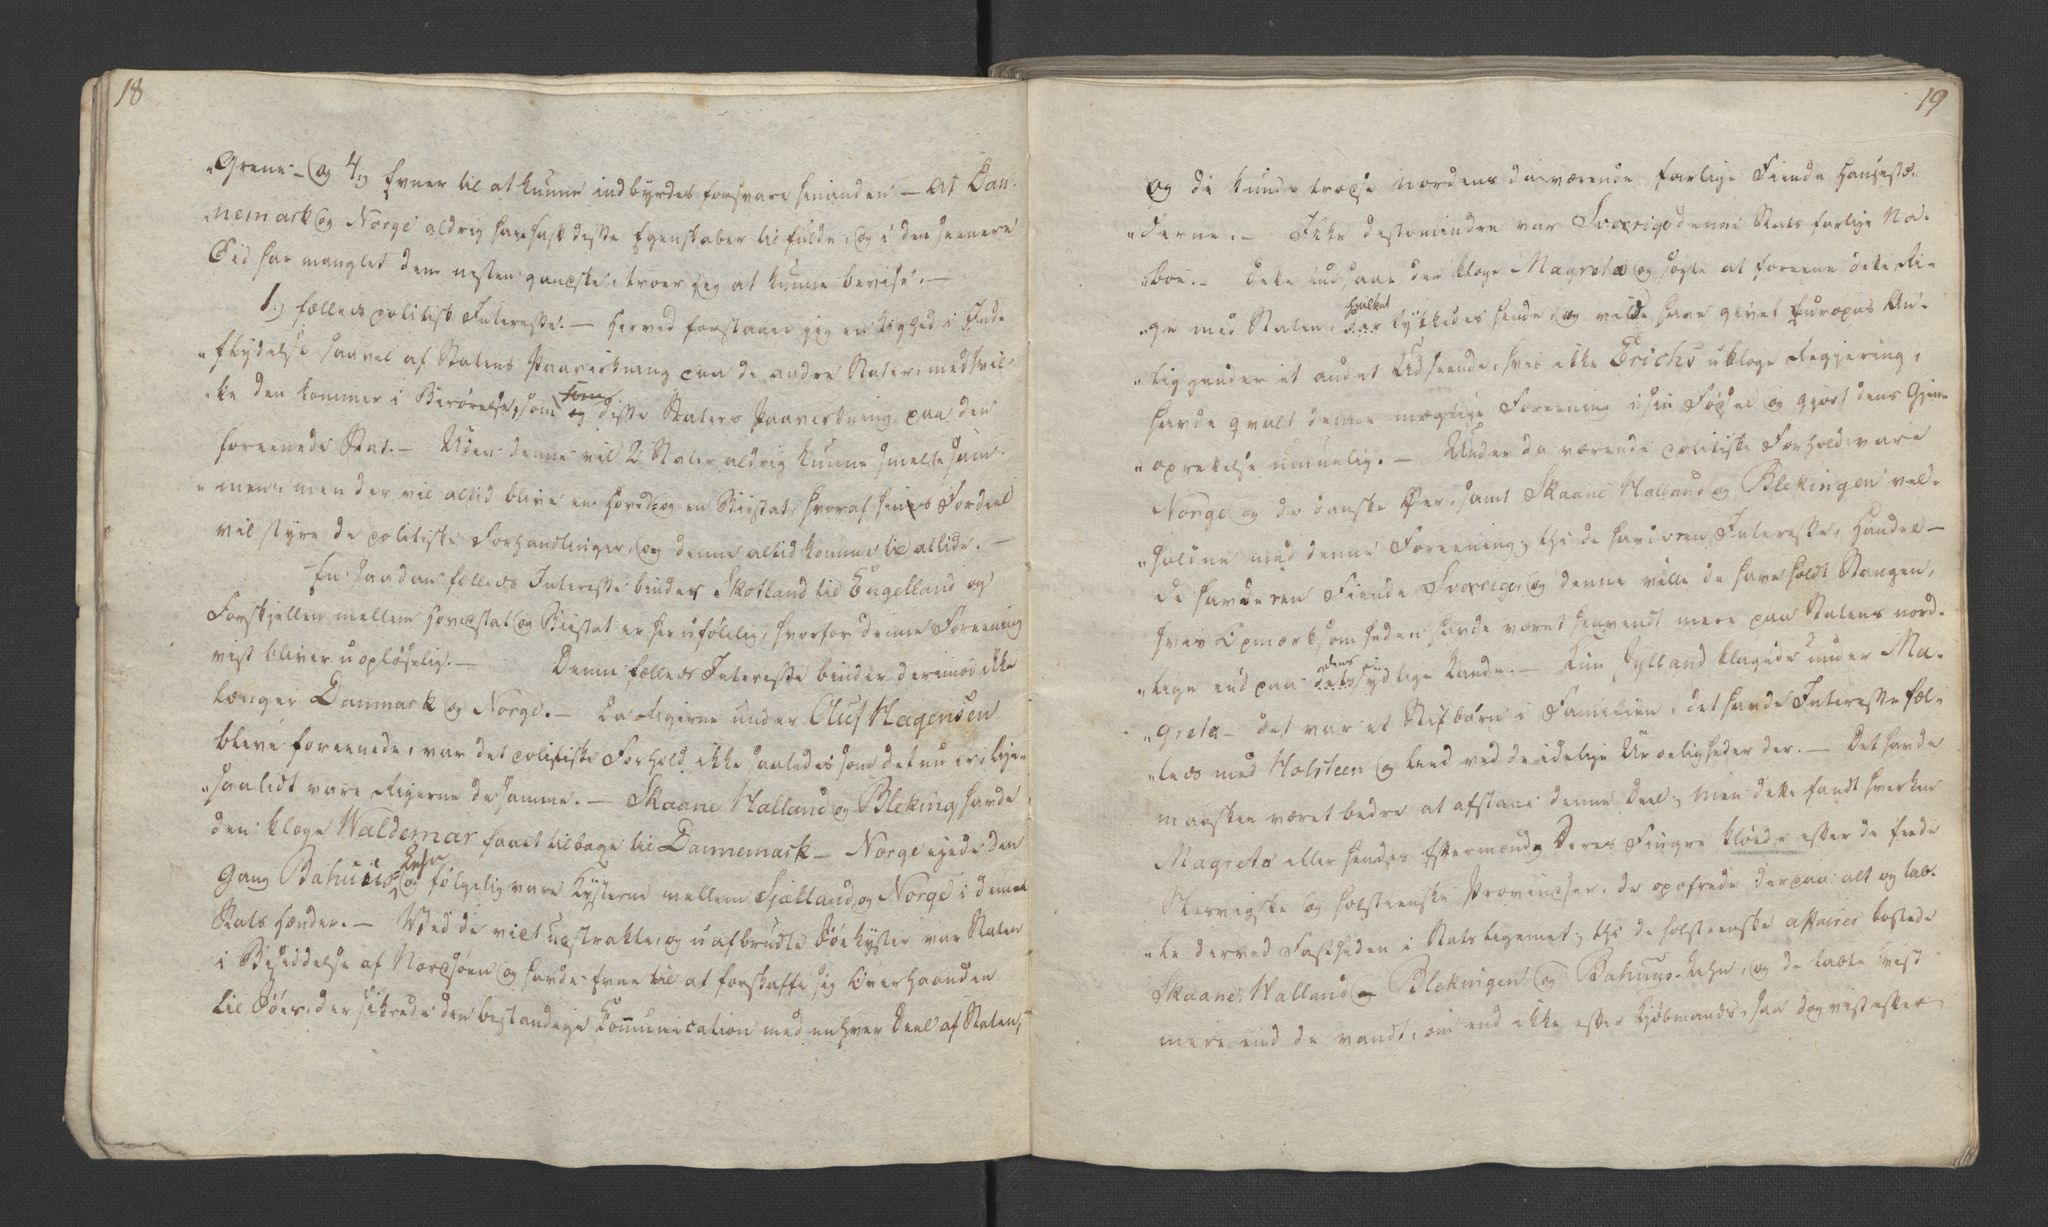 18
„Grene – og 4.) Evner til at kunne indbyrdes forsvare hinanden – At Dan„
„nemark og Norge aldrig have havt disse Egenskaber tilfulde, og i den seenere
Tid har manglet dem næsten ganske, troer jeg at kunne bevise. –
1.) fælleds politisk Interesse. – Herved forstaaer jeg en Lighed i Ind„
„flydelse saavel af Statens Paavirkning paa de andre Stater, med hvil„
„ke den kommer i Berørelse, som disse Staters Paavirkning paa den
foreenede Stat. – Uden denne vil 2 Stater aldrig kunne smelte sam„
„men, men der vil altid blive en Hoved og en Biistat, hvoraf hines Fordeel
vil styre de politiske Forhandlinger, og denne altid komme til at lide. –
En saadan fælleds Interesse binder Skotland til Engelland og
Forskjellen mellem Hovedstat og Biistat er her ufølelig, hvorfor denne Foreening
vist bliver uopløselig. – Denne fælleds Interesse binder derimod ikke
længer Danmark og Norge. – Da Rigerne under Oluf Hagensen
bleve foreenede, var det politiske Forhold ikke saaledes som det nu er, lige„
„saalidt vare Rigerne de samme. – Skaane Halland og Bleking havde
den kloge Waldemar faaet tilbage til Dannemark – Norge eiede den
Gang Bahuus Lehn og følgelig vare Kysterne mellem Sjælland og Norge i denne
Stats Hænder. – Ved de vidt udstrakte, og uafbrudte Søekyster var Staten
i Besiddelse af Nordsøen og havde Evne til at forskaffe sig Overhaanden
til Søes, der sikrede den bestandige Communication med enhver Deel af Staten,
19
og de kunde trodse Nordens daværende farlige Fiende Hansestæ„
„derne. – Ikke destomindre var Sverrige denne Stats farlige Na„
„boe. – Dette indsaae den kloge Magreta og søgte at foreene dette Ri„
„ge med Staten, hvilket lykkedes hende, og vilde have givet Europas An„
„liggender et andet Udseende, hvis ikke Erichs ukloge Regjering,
havde qvalt denne mægtige Foreening i sin Fødsel og gjort dens Gjen„
„oprettelse umuelig. – Under daværende politiske Forhold vare
Norge og de danske Øer, samt Skaane Halland og Blekingen vel„
„holdne med denne Foreening, thi de havde een Interesse, Handel –
de havde een Fiende Sverrige, og denne ville de have holdt Stangen,
hvis Opmærksomheden havde været henvendt mere paa Statens nord„
„lige end paa dens sydlige Kandt. – Kun Jylland klagede under Ma„
„greta – det var et Stifbørn i Familien, det havde Interesse fæl„
„leds med Holsteen og leed ved de idelige Uroeligheder der. – Det havde
maaskee været bedre at afstaae denne Deel, men dette fandt hverken
Magreta eller hendes Eftermænd, Deres Fingre kløede efter de feede
Slesvigske og holsteenske Provindser, de opofrede derpaa alt og tab„
„te derved Fastheden i Statslegemet, thi de holsteenske affairer kostede
Skaane, Halland og Blekingen og Bahuus Lehn, og de tabte vist
mere end de vandt, om end ikke efter Kjøbmands, saa dog vist efter